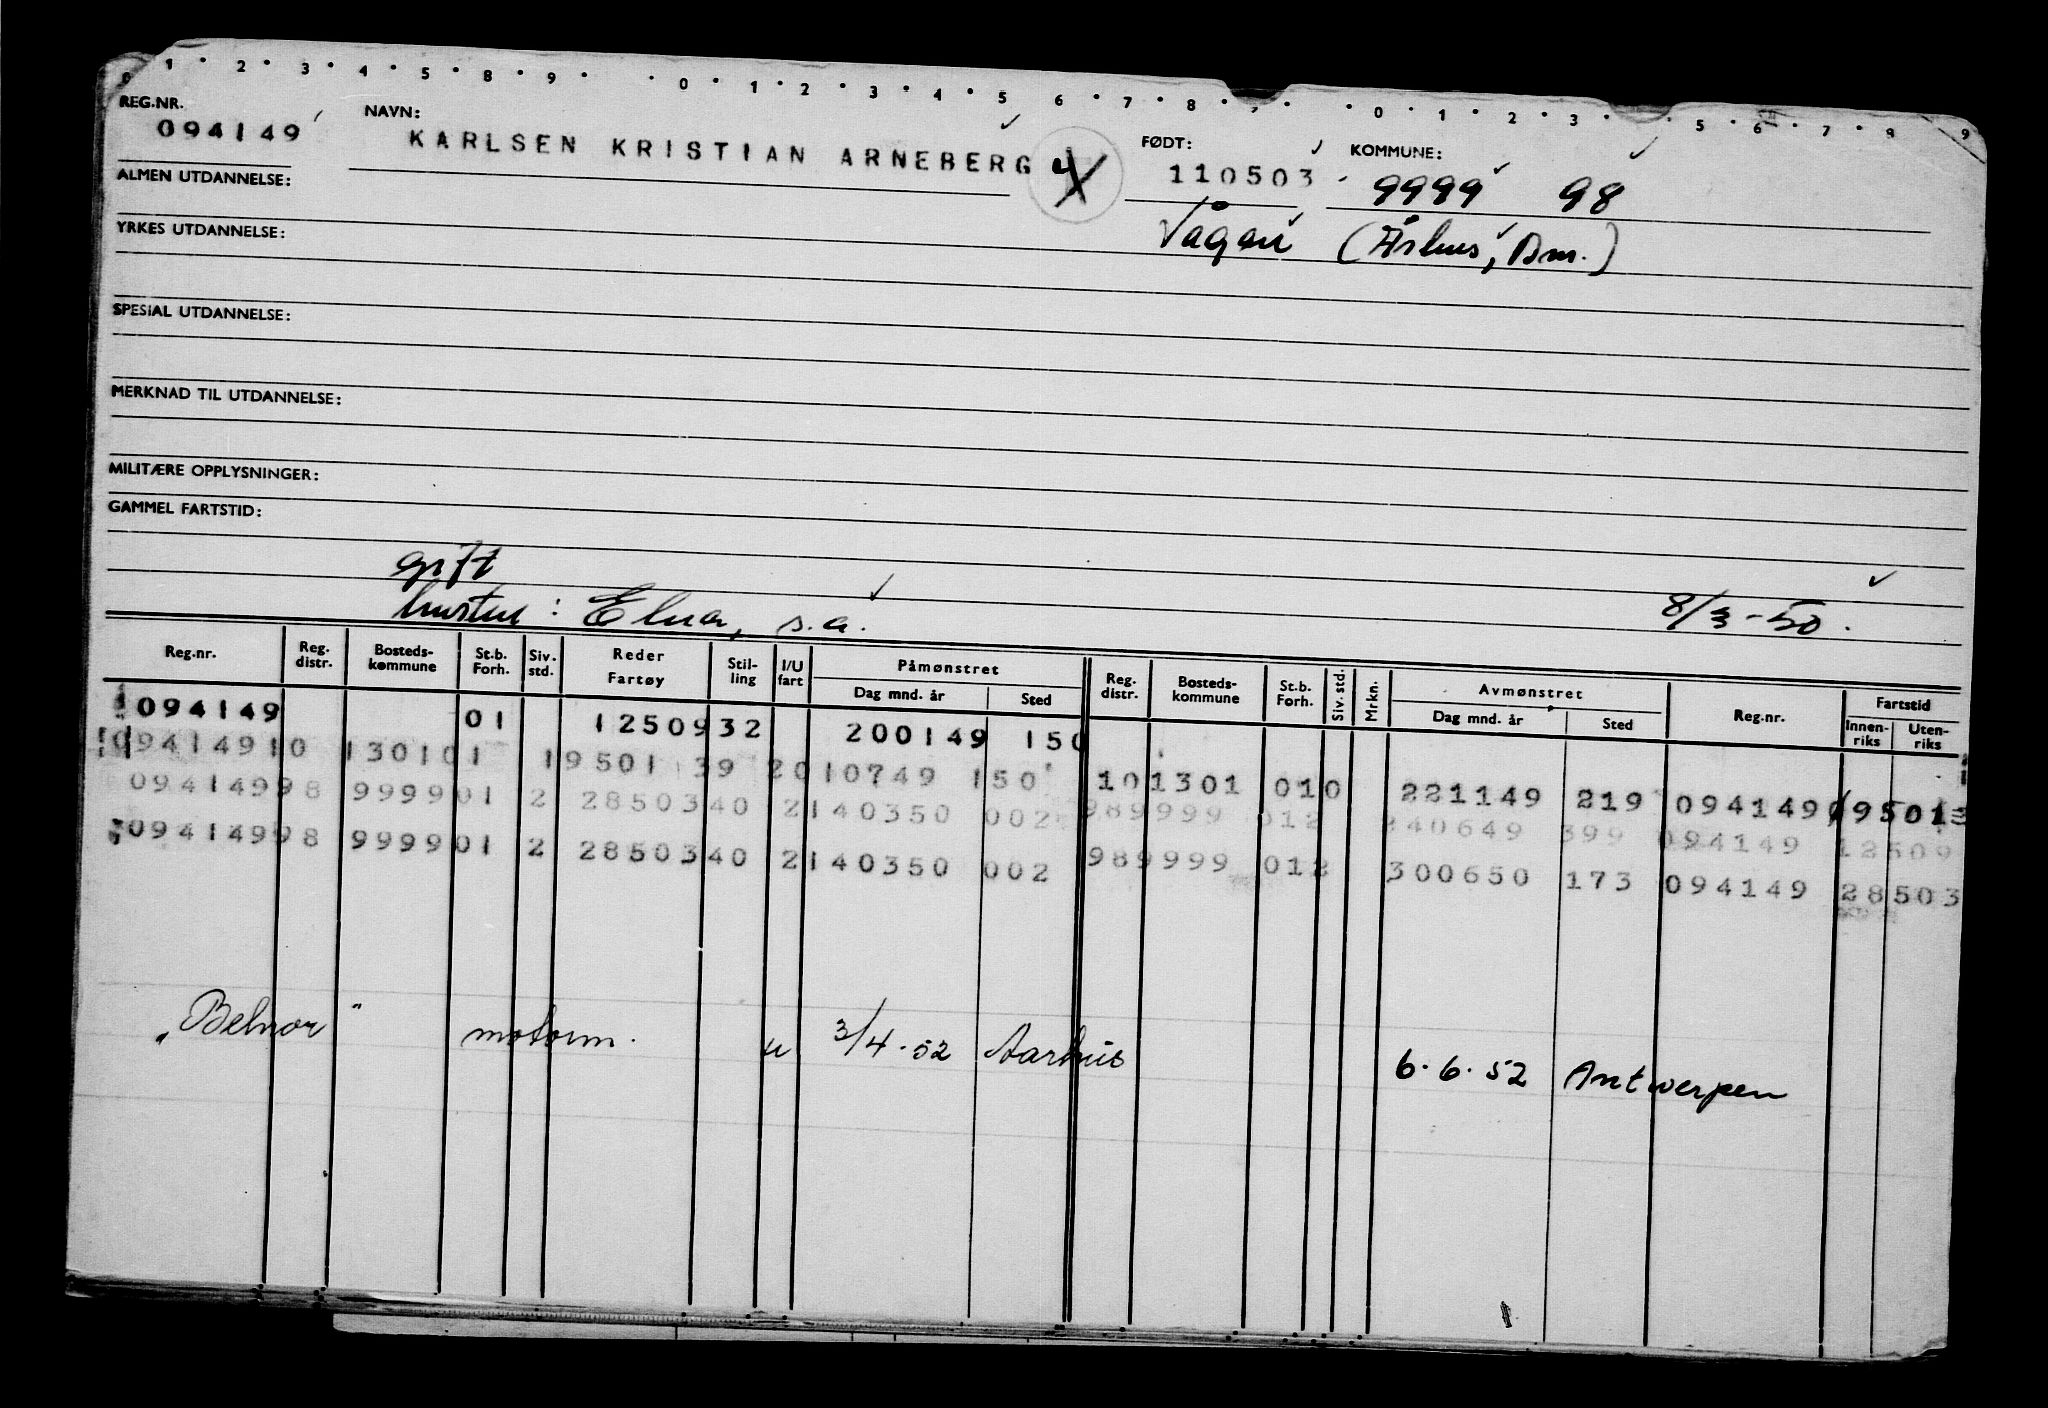 0 1 2 3 4 5 8 9 0 1 2 3 4 5 6 7 8 0 1 2 3 5 6 7 8 9
REG.NR. NAVN: FØDT: KOMMUNE:
094149 KARLSEN KRISTIAN ARNEBERG 110503 9999 98
ALMEN UTDANNELSE:
Vågan (Århus, Dm.)
YRKES UTDANNELSE:
SPESIAL UTDANNELSE:
MERKNAD TIL UTDANNELSE:
MILITÆRE OPPLYSNINGER:
GAMMEL FARTSTID:
gift
hustru: Elna, s.a. 8/3-50.
Reg.nr. Reg. distr. Bosteds-kommune St.b. Forh. Siv. std. Reder Fartøy Stil-ling I/U fart Påmønstret Dag mnd. år Sted Reg. distr. Bosteds-kommune St.b. Forh. Siv. std. Mrkn. Avmønstret Dag mnd. år Sted Reg.nr. Fartstid Innen-riks Uten-riks
094149 01 1250932 200149 150
09414910 130101 19501 39 2010749 150 101301 010 221149 219 094149 95013
09414998 999901 2 2850340 2140350 002 989999 012 240649 399 094149 12509
09414998 999901 2 2850340 2140350 002 989999 012 300650 173 094149 28503
"Belnor" motorm. u 3/4.52 Aarhus 6.6.52 Antwerpen